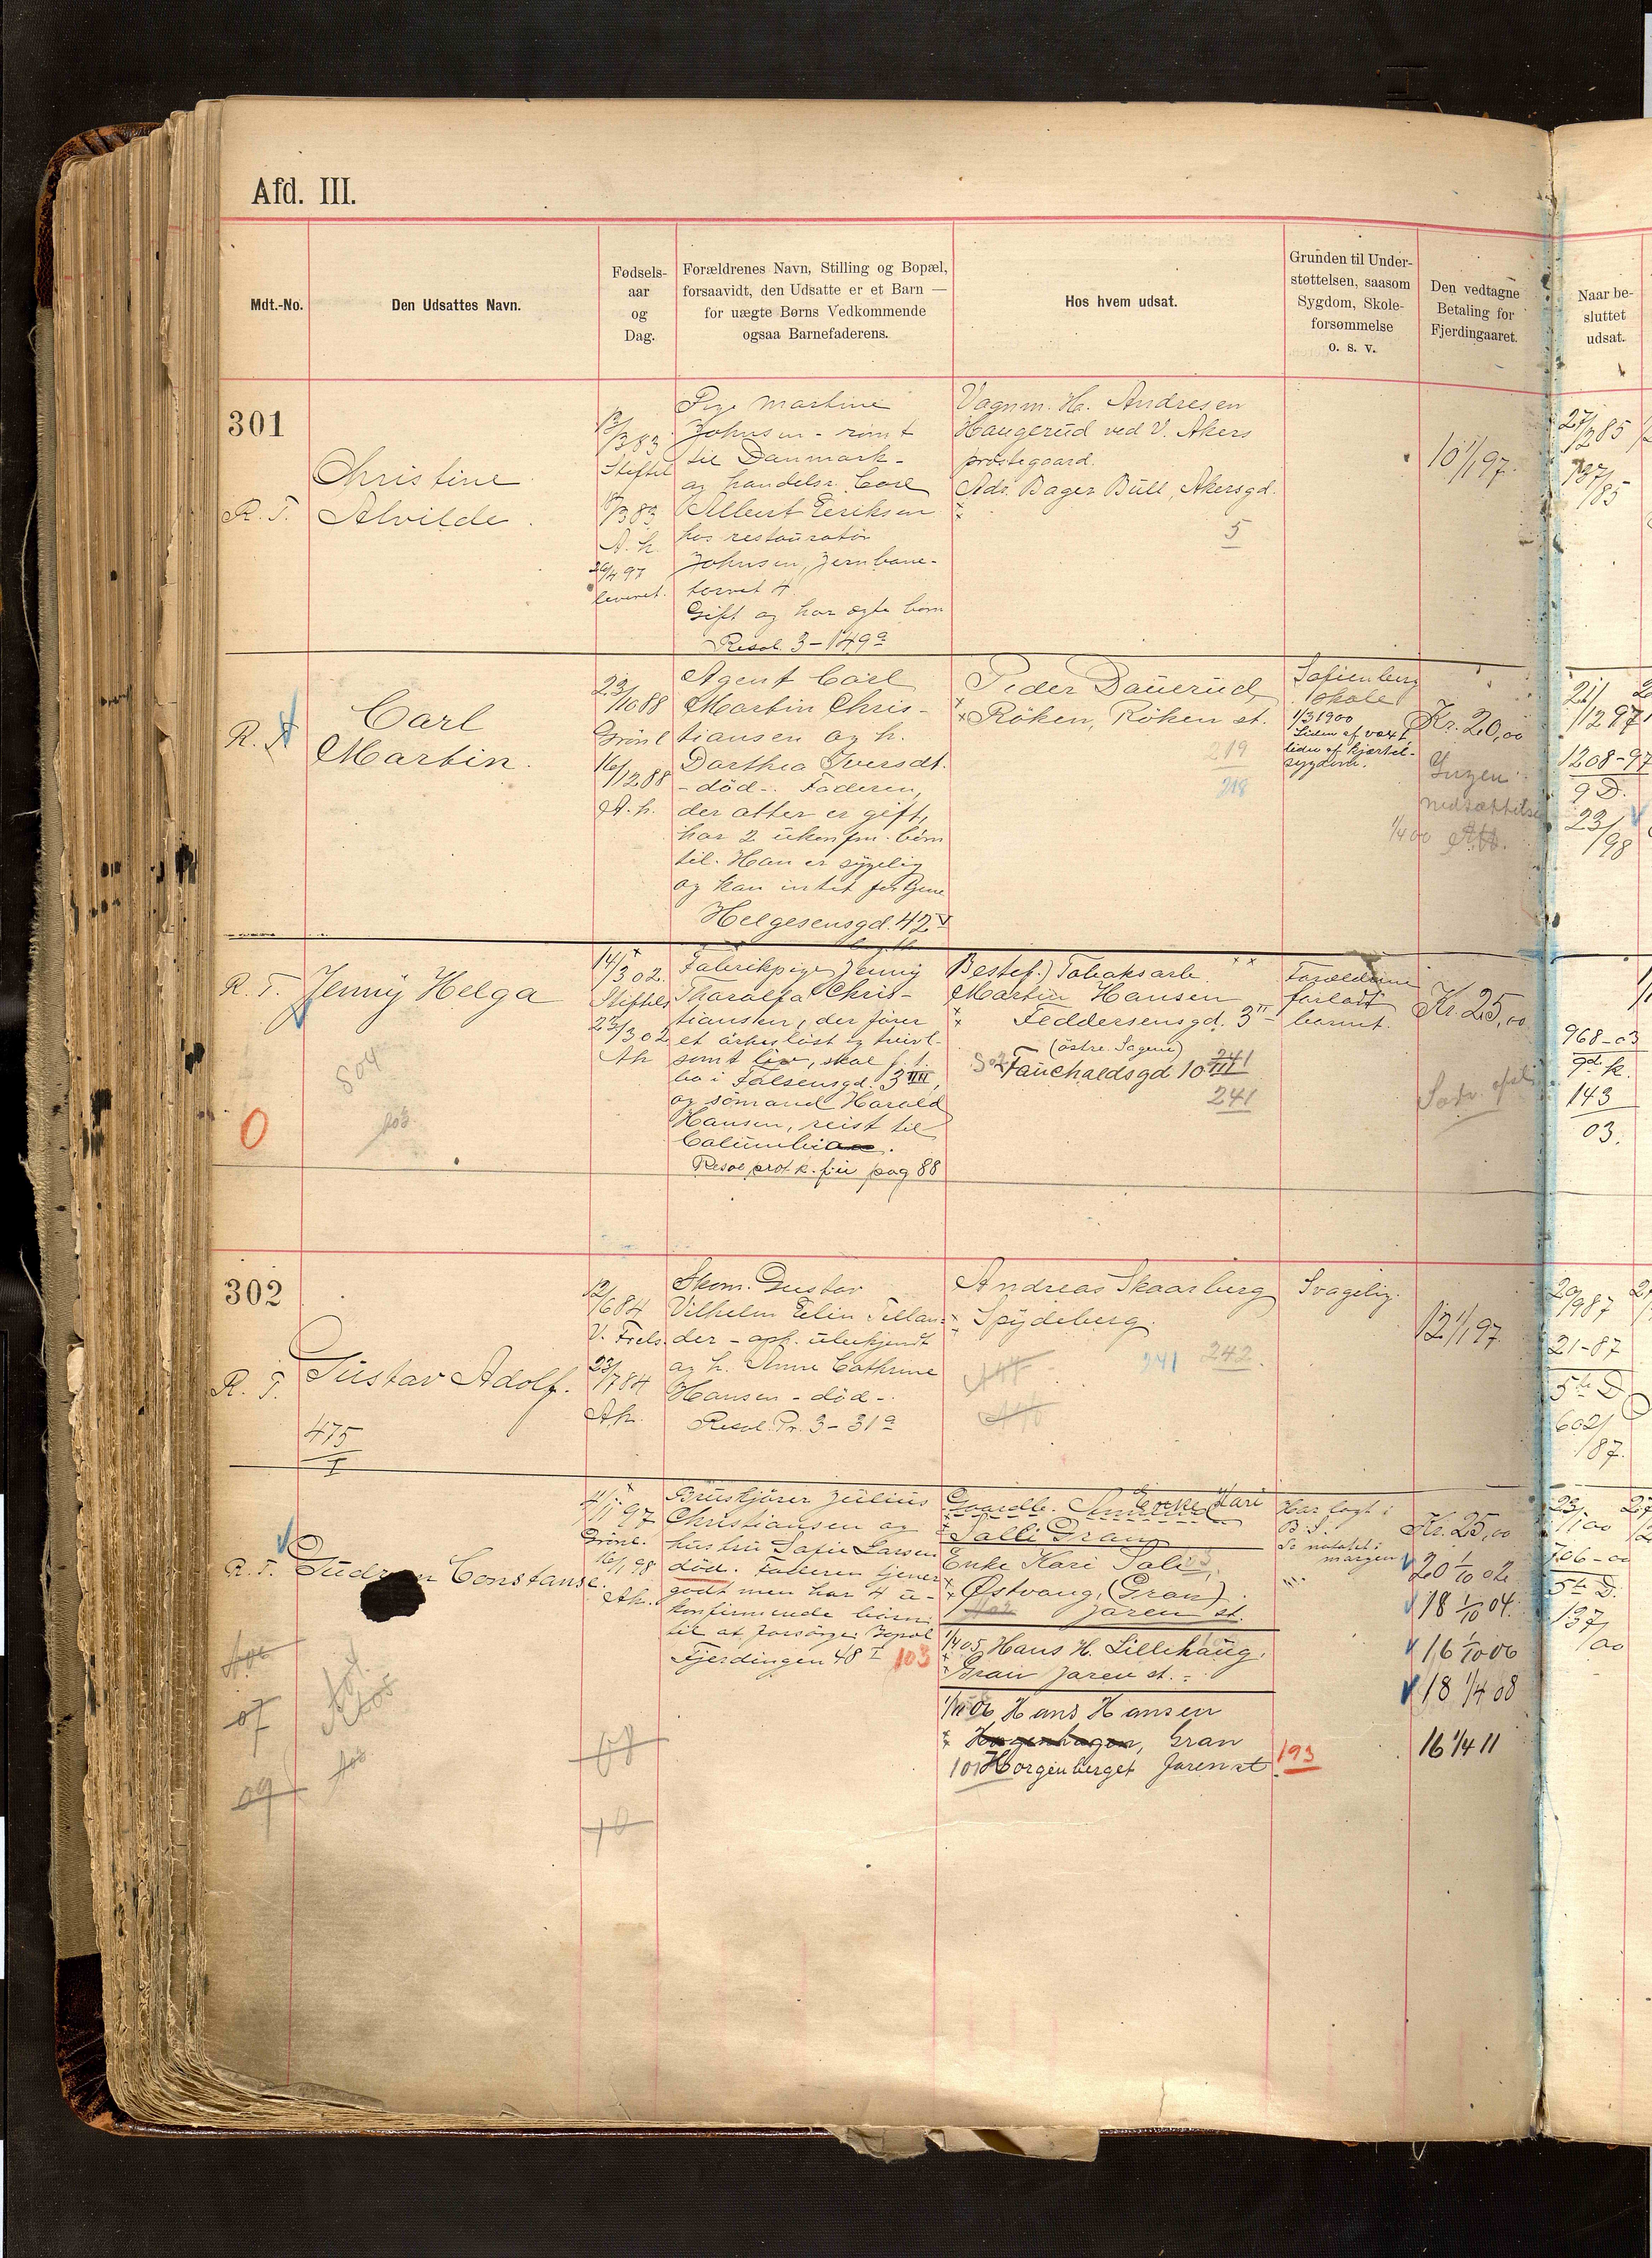 Afd. III.
Mdt.-No.
Den Udsattes Navn.
Fødsels-
aar
og
Dag.
Forældrenes Navn, Stilling og Bopæl,
forsaavidt, den Udsatte er et Barn —
for uægte Børns Vedkommende
ogsaa Barnefaderens.
Hos hvem udsat.
Grunden til Under-
støttelsen, saasom
Sygdom, Skole-
forsømmelse
o. s. v.
Den vedtagne
Betaling for
Fjerdingaaret.
Naar be-
sluttet
udsat.
301
R. T.
Christine
Alvilde
13/3 83
Stiftel
3 83
A. h.
26/4 97
leveret.
Pige Martine
Johnsen - rømt
til Danmark -
og handelsr. Carl
Albert Eriksen
hos restauratør
Johnsen, Jernbane-
torvet 4
Gift og har ægte børn
Resol. 3 - 149 a
Vognm. H. Andresen
Haugerud ved V. Akers
præstegaard.
Adr. Bager Bull, Akersgd.
5
10 1/1 97.
27/2 85
137/85
R. T.
Carl
Martin.
23/10 88
Grønl
16/12 88
A. h.
Agent Carl
Martin Chris-
tiansen og h.
Dorthea Iversdt.
- død -. Faderen,
der atter er gift,
har 2 ukonfm. børn
til. Han er sygelig
og kan intet fortjene
Helgesensgd. 42 v
Peder Dauerud
Røken, Røken st.
219
218
Sofienberg
skole
1/3 1900
Liden af vext
lider af hjerte-
sygdom.
Kr. 20,00
Ingen
nedsættelse
1/4 00
21/12 97
1208-97
9 D.
23/98
R. T.
Jenny Helga
504
0
14/3 02
Stiftels
23/3 02
Ah
Fabrikpige Jenny
Tharalfa Chris-
tiansen, der fører
et arbeidsløst og tvivl-
somt liv, skal f. t.
bo i Falsensgd. 3 III,
og sømand Harald
Hansen, reist til
Columbia.
Resol prot k. fii pag 88
Bestef.) Tobaksarb.
Martin Hansen
Feddersensgd. 3 II
(østre Sagene)
Fauchaldsgd 10 III
241
241
Forældrene
forladt
barnet.
Kr. 25,00
968-03
9d. k.
143
03.
302
R. T.
Gustav Adolf.
475
I
12/6 84
V. Frels.
23/7 84
Ah.
Skom. Gustav
Vilhelm Elin Tellan-
der - oph. ubekjendt
og h. Anne Cathrine
Hansen - død -
Resol. Pr. 3 - 31 a
Andreas Skaarberg
Spydeberg.
241 242
Svagelig.
12 1/1 97
20/9 87
21-87
5te D
602/87.
R. T.
Gudrun Constanse.
07
09
4/11 97
Grønl.
16/1 98
Ah.
Bruskjører Julius
Christiansen og
hustru Sofie Larsen
død. Faderen tjener
godt men har 4 u-
konfirmerede børn
til at forsørge. Bopæl
Fjerdingen 48 I
103
Gaardbr.
Salli Gran
Enke Kari Sali
Østvang, (Gran)
Jaren st.
1/4 05 Hans H. Lillehaug.
Gran Jaren st.
1/10 06 Hans Hansen
Gran
101 Horgenberget Jaren st
193
Har lagt i
B. S.
Se notatet i
margen
Kr. 25,00
20 1/10 02
18 1/10 04.
16 1/10 06
18 1/4 08
16 1/4 11
23/1 00
706-00
5te D.
137/00